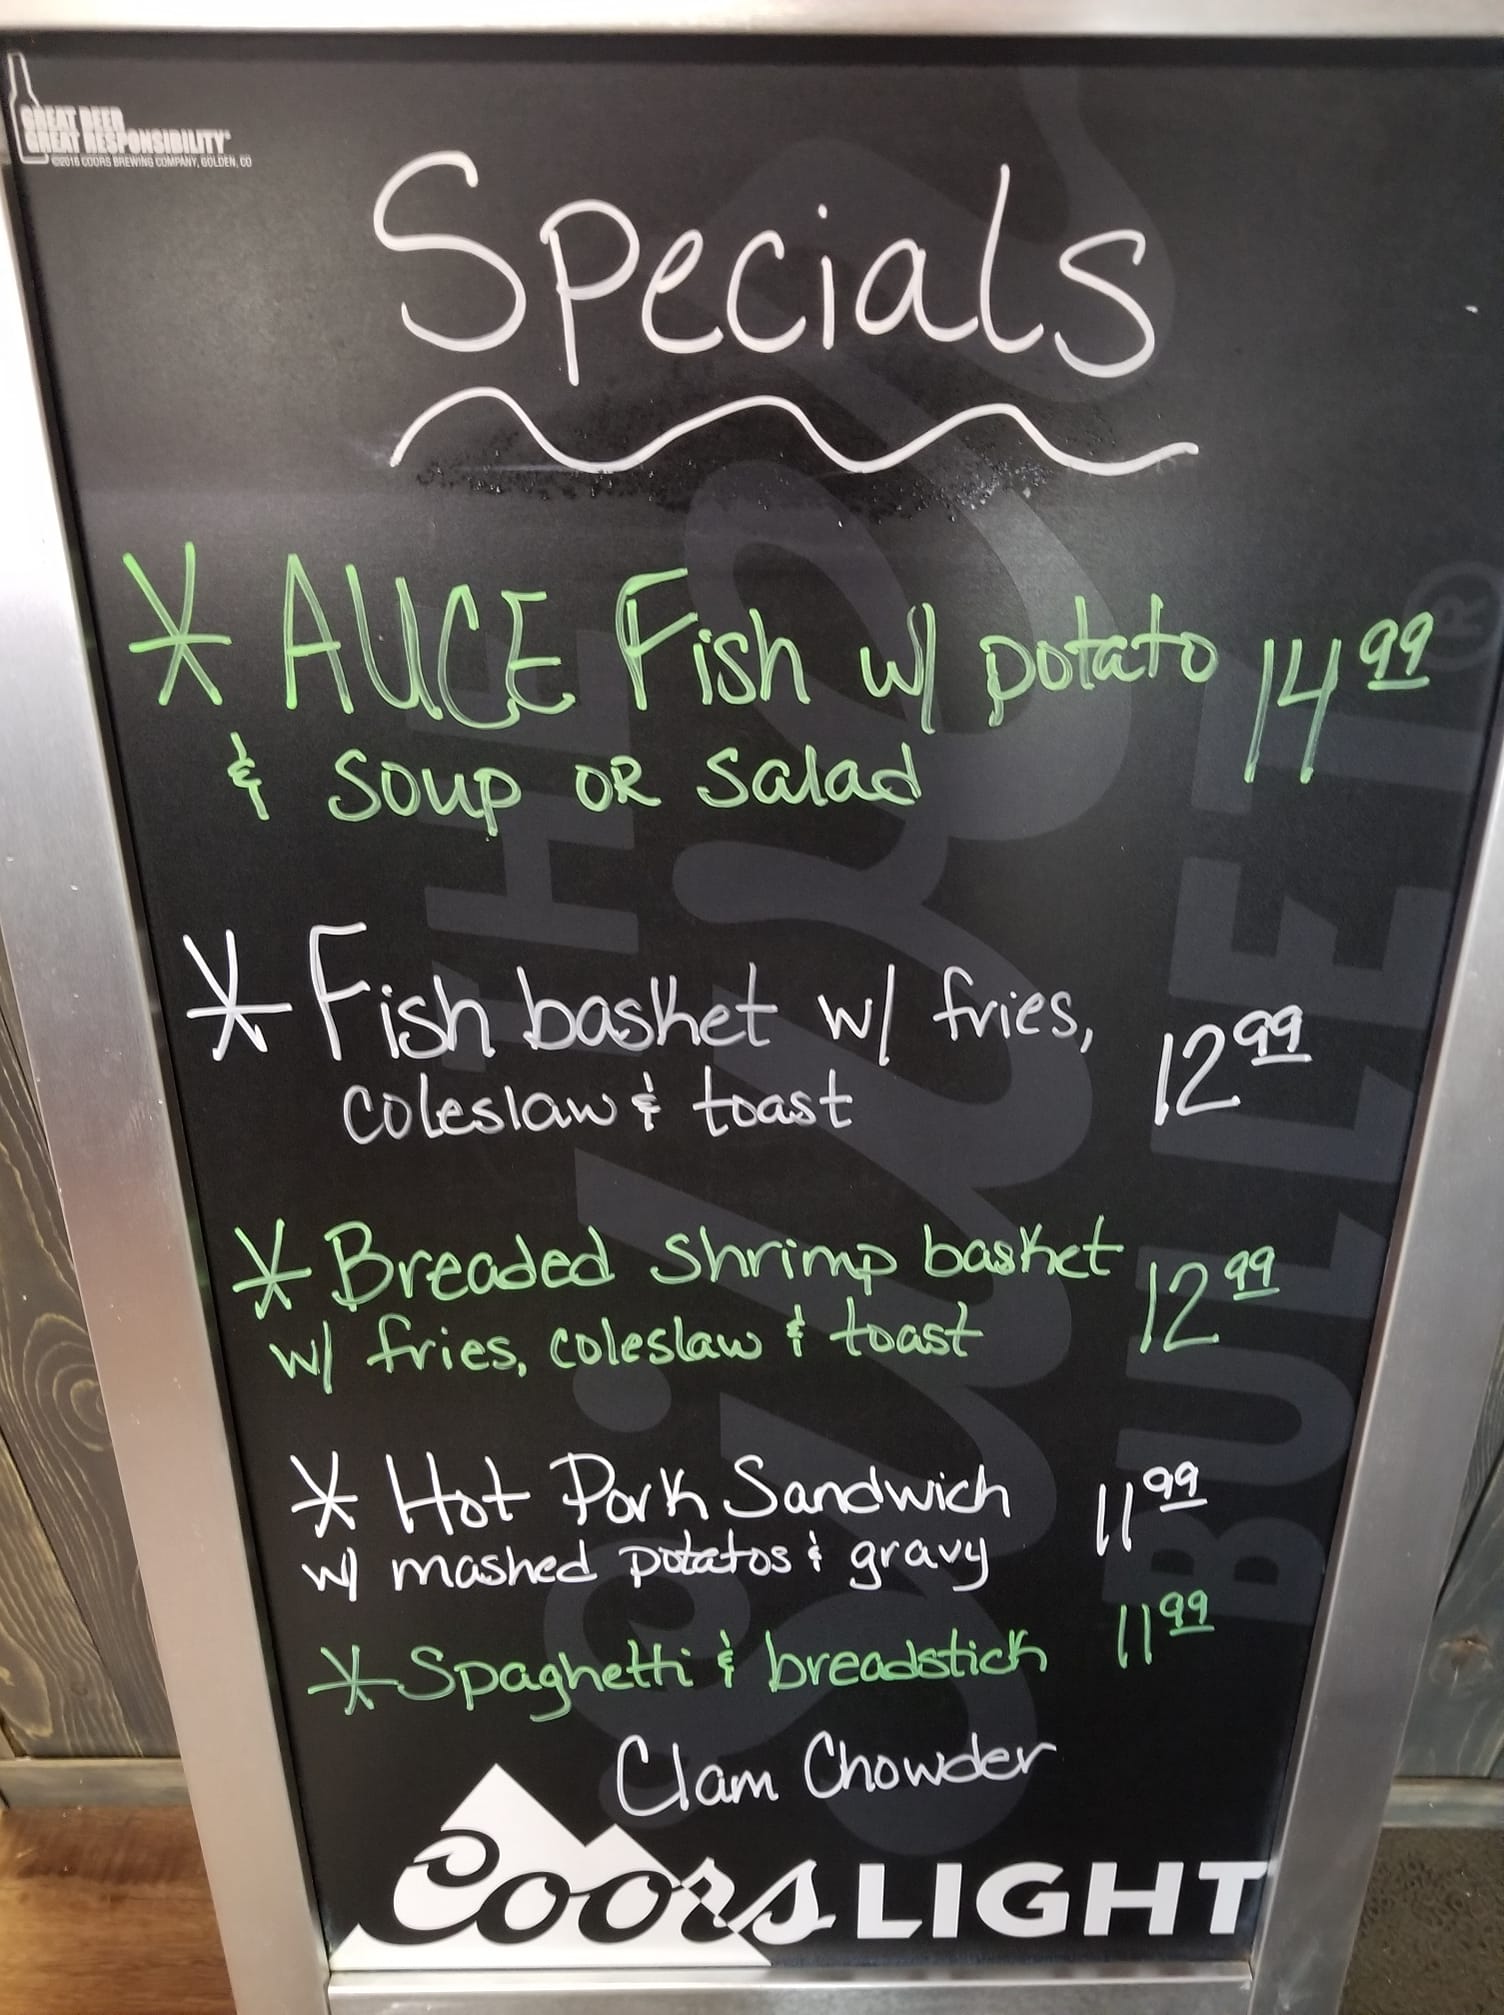 GREAT BEER
GREAT RESPONSIBILITY®
©2016 COORS BREWING COMPANY, GOLDEN, CO
Specials
* AUCE Fish w/ potato 14.99
& soup OR salad
* Fish basket w/ fries, 12.99
coleslaw & toast
* Breaded shrimp basket 12.99
w/ fries, coleslaw & toast
* Hot Pork Sandwich 11.99
w/ mashed potatos & gravy
* Spaghetti & breadstick 11.99
Clam Chowder
Coors LIGHT
THE
Silver
BULLET®